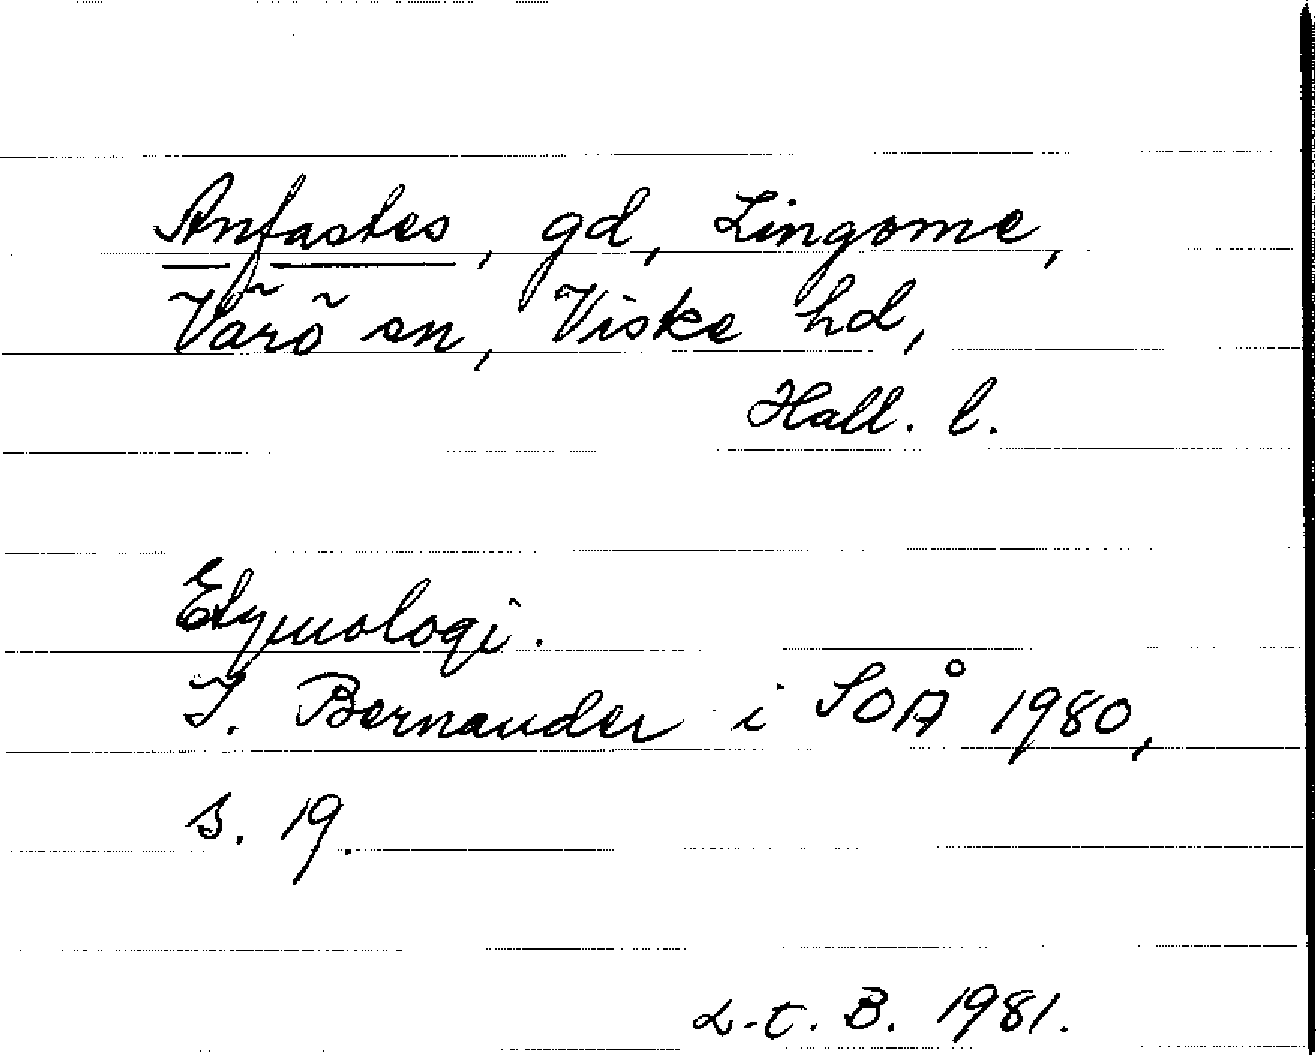 Anfastes, gd, Lingome,
Värö sn, Viske hd,
Hall. l.
Etymologi.
I. Bernander i SOÅ 1980,
s. 19.
L-t. B. 1981.